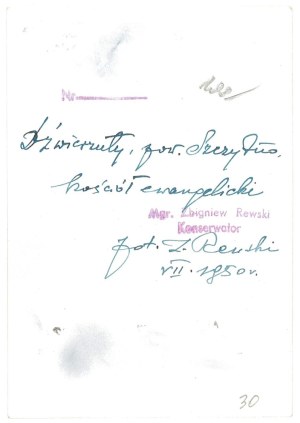 Nr.
Dźwierzuty, pow. Szczytno.
kościół ewangelicki
Mgr. Zbigniew Rewski
Konserwator
fot. Z. Rewski
VII. 1950 r.
30